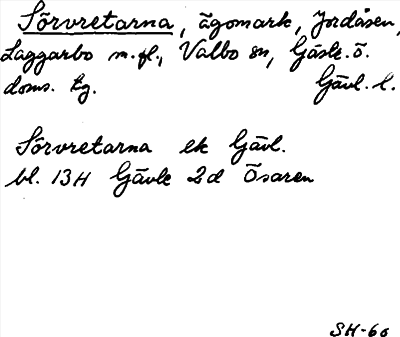 Sörvretarna, ägomark, Jordåsen,
Laggarbo m.fl., Valbo sn, Gästr. ö.
doms. tg. Gävl. l.
Sörvretarna ek Gävl.
bl. 13H Gävle 2d Ösaren
SH-66